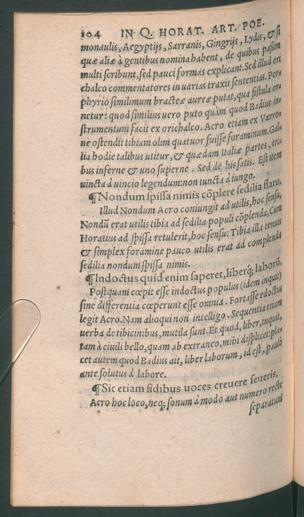 104 IN Q. HORAT. ART. POE.
monaulis, Aegyptijs, Sarranis, Gingrijs, Lydis, & si
quæ aliæ à gentibus nomina habent, de quibus passim
multi scribunt, sed pauci formas explicant. Sed illud ori
chalco commentatores in uarias traxit sententias. Por
phyrio simillimum bracteæ aureæ putat, qua fistula or
netur: quod similius uero puto quàm quod Badius ins
strumentum facit ex orichalco. Acro etiam ex Varro
ne ostendit tibiam olim quatuor fuisse foraminum.
lia hodie talibus utitur, & quædam Italiæ partes, tri
bus inferne & uno superne. Sed de his satis. Est item
uincta à uincio legendum: non tuncta à iungo.
¶Nondum spissa nimis cōplere sedilia flatu.
Illud Nondum Acro coniungit ad utilis, hoc sensu,
Nondū erat utilis tibia ad sedilia populi cōplenda. Cum
Horatius ad spissa retulerit, hoc sensu: Tibia illa tenuis
& simplex foramine pauco utilis erat ad complenda
sedilia nondum spissa nimis.
¶Indoctus quid enim saperet, liberq; laborū.
Postquam cœpit esse indoctus populus (idem inquit)
sine differentia cœperunt esse omnia. Fortasse edoctus
legit Acro. Nam alioqui non intelligo. Sequentia etiam
uerba de tibicinibus, mutila sunt. Et quod, liber, inquit,
tam à ciuili bello, quam ab extraneo, mihi displicet: pla
cet autem quod Badius ait, liber laborum, id est, paulò
ante solutus à labore.
¶Sic etiam fidibus uoces creuere seueris.
Acro hoc loco, neq; sonum à modo aut numero recte
separatum